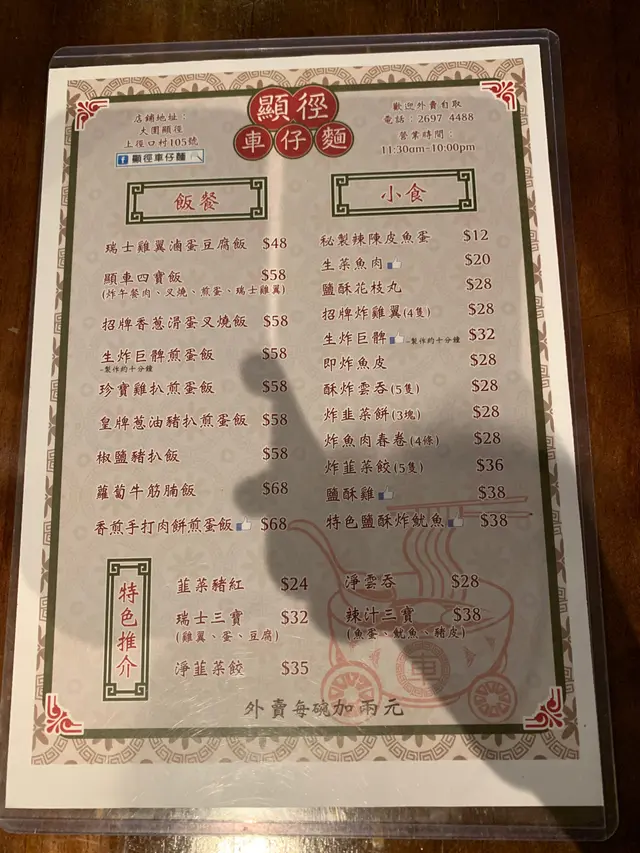 顯徑
車仔麵
店鋪地址：
大圍顯徑
上徑口村105號
顯徑車仔麵
歡迎外賣自取
電話：2697 4488
營業時間：
11:30am-10:00pm
飯餐
瑞士雞翼滷蛋豆腐飯 $48
顯車四寶飯 $58
(炸午餐肉、叉燒、煎蛋、瑞士雞翼)
招牌香蔥滑蛋叉燒飯 $58
生炸巨髀煎蛋飯 $58
-製作約十分鐘
珍寶雞扒煎蛋飯 $58
皇牌蔥油豬扒煎蛋飯 $58
椒鹽豬扒飯 $58
蘿蔔牛筋腩飯 $68
香煎手打肉餅煎蛋飯 $68
小食
秘製辣陳皮魚蛋 $12
生菜魚肉 $20
鹽酥花枝丸 $28
招牌炸雞翼(4隻) $28
生炸巨髀 -製作約十分鐘 $32
即炸魚皮 $28
酥炸雲吞(5隻) $28
炸韮菜餅(3塊) $28
炸魚肉春卷(4條) $28
炸韮菜餃(5隻) $36
鹽酥雞 $38
特色鹽酥炸魷魚 $38
特色推介
韮菜豬紅 $24
瑞士三寶 $32
(雞翼、蛋、豆腐)
淨韮菜餃 $35
淨雲吞 $28
辣汁三寶 $38
(魚蛋、魷魚、豬皮)
車
外賣每碗加兩元